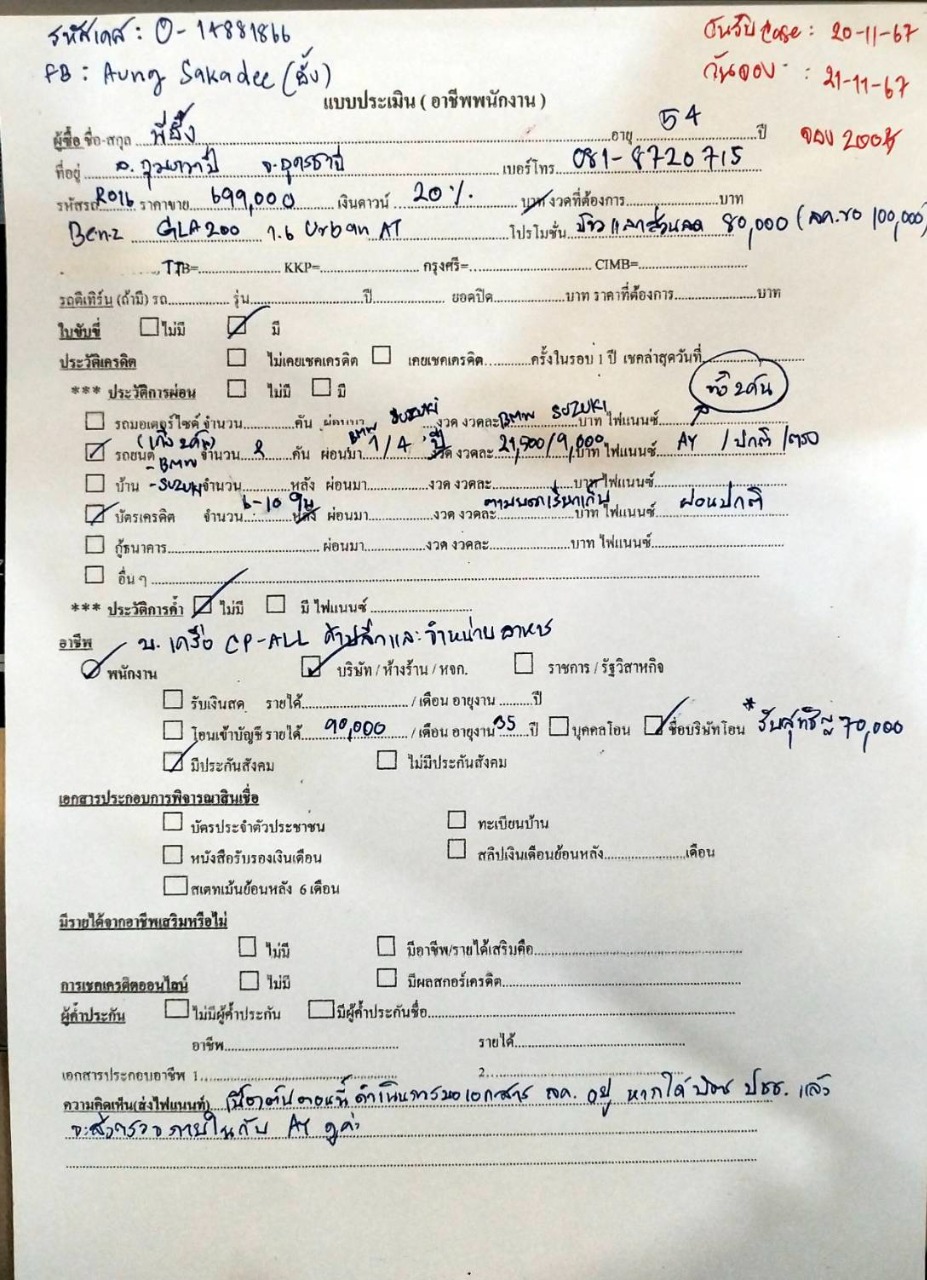 รหัสเคส : O-14881866
วันรับ case : 20-11-67
FB : Aung Sakadee (อั๋ง)
วันจอง : 21-11-67
แบบประเมิน ( อาชีพพนักงาน )
ผู้ซื้อ ชื่อ-สกุล พี่อั๋ง อายุ 54 ปี
จอง 200฿
ที่อยู่ อ.กุมภวาปี จ.อุดรธานี เบอร์โทร 081-8720715
รหัสรถ R016 ราคาขาย 699,000 เงินดาวน์ 20% บาท งวดที่ต้องการ บาท
Benz GLA200 1.6 Urban AT โปรโมชั่น ส่วนลด 80,000 (ลค.ขอ 100,000)
TTB= KKP= กรุงศรี= CIMB=
รถตีเทิร์น (ถ้ามี) รถ รุ่น ปี ยอดปิด บาท ราคาที่ต้องการ บาท
ใบขับขี่ ไม่มี มี
ประวัติเครดิต ไม่เคยเชคเครดิต เคยเชคเครดิต ครั้งในรอบ 1 ปี เชคล่าสุดวันที่
*** ประวัติการผ่อน ไม่มี มี ทั้ง 2 คัน
รถมอเตอร์ไซต์ จำนวน คัน ผ่อนมา BMW SUZUKI งวด งวดละ BMW SUZUKI บาท ไฟแนนซ์
(เก๋ง 2 คัน)
รถยนต์ จำนวน 2 คัน ผ่อนมา 1/4 ปี งวด งวดละ 21,900/9,000 บาท ไฟแนนซ์ AY / ปกติ / ตรง
- BMW
บ้าน - SUZUKI จำนวน หลัง ผ่อนมา งวด งวดละ บาท ไฟแนนซ์
บัตรเครดิต จำนวน 6-10 ใบ หลัง ผ่อนมา งวด งวดละ ตามยอดเรียกเก็บ บาท ไฟแนนซ์ ผ่อนปกติ
กู้ธนาคาร ผ่อนมา งวด งวดละ บาท ไฟแนนซ์
อื่น ๆ
*** ประวัติการค้ำ ไม่มี มี ไฟแนนซ์
อาชีพ บ. เครือ CP-ALL ค้าปลีกและจำหน่ายอาหาร
พนักงาน บริษัท / ห้างร้าน / หจก. ราชการ / รัฐวิสาหกิจ
รับเงินสด รายได้ / เดือน อายุงาน ปี
โอนเข้าบัญชี รายได้ 90,000 / เดือน อายุงาน 35 ปี บุคคลโอน ชื่อบริษัทโอน * รับสุทธิ 70,000
มีประกันสังคม ไม่มีประกันสังคม
เอกสารประกอบการพิจารณาสินเชื่อ
บัตรประจำตัวประชาชน ทะเบียนบ้าน
หนังสือรับรองเงินเดือน สลิปเงินเดือนย้อนหลัง เดือน
สเตทเม้นย้อนหลัง 6 เดือน
มีรายได้จากอาชีพเสริมหรือไม่
ไม่มี มีอาชีพ/รายได้เสริมคือ
การเชคเครดิตออนไลน์ ไม่มี มีผลสกอร์เครดิต
ผู้ค้ำประกัน ไม่มีผู้ค้ำประกัน มีผู้ค้ำประกันชื่อ
อาชีพ รายได้
เอกสารประกอบอาชีพ 1. 2.
ความคิดเห็น(ส่งไฟแนนท์) เบื้องต้นตอนนี้ดำเนินการขอเอกสาร ลค. อยู่ หากได้บัตร ปชช. แล้ว
จะส่งตรวจภายในกับ AY ดูค่ะ